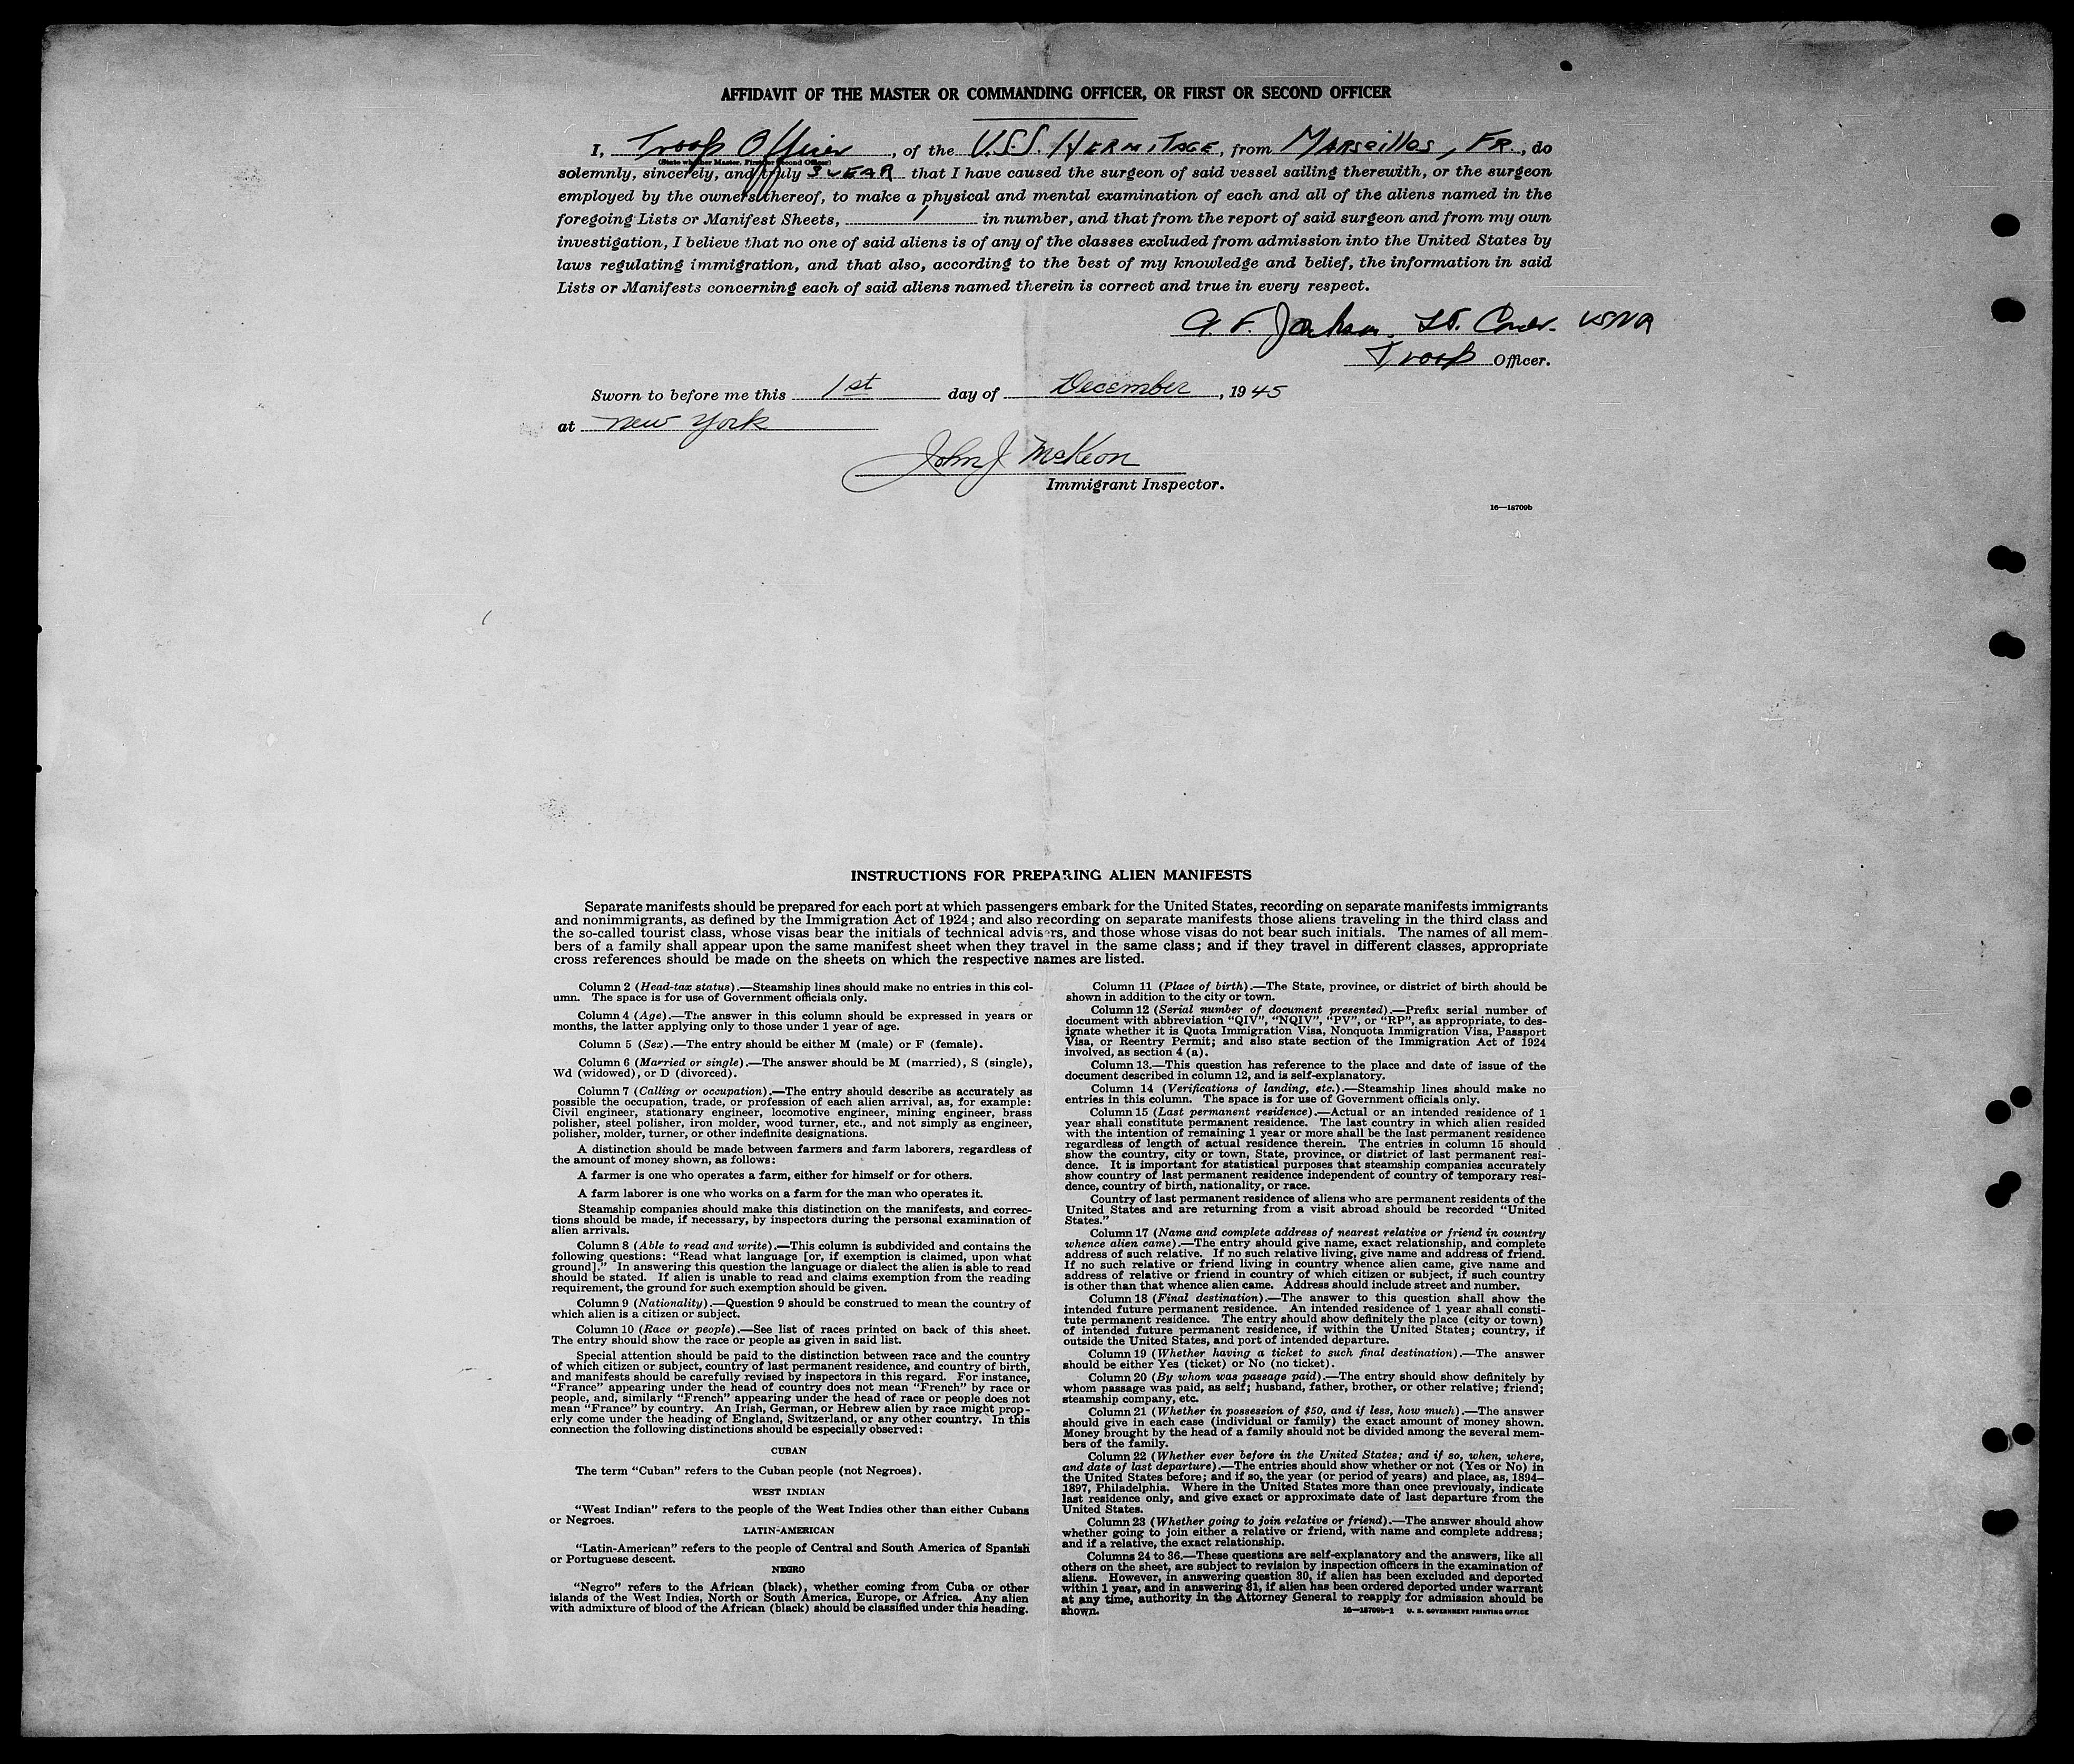 AFFIDAVIT OF THE MASTER OR COMMANDING OFFICER, OR FIRST OR SECOND OFFICER
I, Troop Officer, of the U.S.S. HERMITAGE, from MARSEILLES, FR., do
(State whether Master, First or Second Officer)
solemnly, sincerely, and truly SWEAR that I have caused the surgeon of said vessel sailing therewith, or the surgeon
employed by the owners thereof, to make a physical and mental examination of each and all of the aliens named in the
foregoing Lists or Manifest Sheets, 1 in number, and that from the report of said surgeon and from my own
investigation, I believe that no one of said aliens is of any of the classes excluded from admission into the United States by
laws regulating immigration, and that also, according to the best of my knowledge and belief, the information in said
Lists or Manifests concerning each of said aliens named therein is correct and true in every respect.
Lt. Comdr.
Troop Officer.
Sworn to before me this 1st day of December, 1945
at New York
John J McKeon
Immigrant Inspector.
16—18709b
INSTRUCTIONS FOR PREPARING ALIEN MANIFESTS
Separate manifests should be prepared for each port at which passengers embark for the United States, recording on separate manifests immigrants
and nonimmigrants, as defined by the Immigration Act of 1924; and also recording on separate manifests those aliens traveling in the third class and
the so-called tourist class, whose visas bear the initials of technical advisers, and those whose visas do not bear such initials. The names of all mem-
bers of a family shall appear upon the same manifest sheet when they travel in the same class; and if they travel in different classes, appropriate
cross references should be made on the sheets on which the respective names are listed.
Column 2 (Head-tax status).—Steamship lines should make no entries in this col-
umn. The space is for use of Government officials only.
Column 4 (Age).—The answer in this column should be expressed in years or
months, the latter applying only to those under 1 year of age.
Column 5 (Sex).—The entry should be either M (male) or F (female).
Column 6 (Married or single).—The answer should be M (married), S (single),
Wd (widowed), or D (divorced).
Column 7 (Calling or occupation).—The entry should describe as accurately as
possible the occupation, trade, or profession of each alien arrival, as, for example:
Civil engineer, stationary engineer, locomotive engineer, mining engineer, brass
polisher, steel polisher, iron molder, wood turner, etc., and not simply as engineer,
polisher, molder, turner, or other indefinite designations.
A distinction should be made between farmers and farm laborers, regardless of
the amount of money shown, as follows:
A farmer is one who operates a farm, either for himself or for others.
A farm laborer is one who works on a farm for the man who operates it.
Steamship companies should make this distinction on the manifests, and correc-
tions should be made, if necessary, by inspectors during the personal examination of
alien arrivals.
Column 8 (Able to read and write).—This column is subdivided and contains the
following questions: "Read what language [or, if exemption is claimed, upon what
ground]." In answering this question the language or dialect the alien is able to read
should be stated. If alien is unable to read and claims exemption from the reading
requirement, the ground for such exemption should be given.
Column 9 (Nationality).—Question 9 should be construed to mean the country of
which alien is a citizen or subject.
Column 10 (Race or people).—See list of races printed on back of this sheet.
The entry should show the race or people as given in said list.
Special attention should be paid to the distinction between race and the country
of which citizen or subject, country of last permanent residence, and country of birth,
and manifests should be carefully revised by inspectors in this regard. For instance,
"France" appearing under the head of country does not mean "French" by race or
people, and, similarly "French" appearing under the head of race or people does not
mean "France" by country. An Irish, German, or Hebrew alien by race might prop-
erly come under the heading of England, Switzerland, or any other country. In this
connection the following distinctions should be especially observed:
CUBAN
The term "Cuban" refers to the Cuban people (not Negroes).
WEST INDIAN
"West Indian" refers to the people of the West Indies other than either Cubans
or Negroes.
LATIN-AMERICAN
"Latin-American" refers to the people of Central and South America of Spanish
or Portuguese descent.
NEGRO
"Negro" refers to the African (black), whether coming from Cuba or other
islands of the West Indies, North or South America, Europe, or Africa. Any alien
with admixture of blood of the African (black) should be classified under this heading.
Column 11 (Place of birth).—The State, province, or district of birth should be
shown in addition to the city or town.
Column 12 (Serial number of document presented).—Prefix serial number of
document with abbreviation "QIV", "NQIV", "PV", or "RP", as appropriate, to des-
ignate whether it is Quota Immigration Visa, Nonquota Immigration Visa, Passport
Visa, or Reentry Permit; and also state section of the Immigration Act of 1924
involved, as section 4 (a).
Column 13.—This question has reference to the place and date of issue of the
document described in column 12, and is self-explanatory.
Column 14 (Verifications of landing, etc.).—Steamship lines should make no
entries in this column. The space is for use of Government officials only.
Column 15 (Last permanent residence).—Actual or an intended residence of 1
year shall constitute permanent residence. The last country in which alien resided
with the intention of remaining 1 year or more shall be the last permanent residence
regardless of length of actual residence therein. The entries in column 15 should
show the country, city or town, State, province, or district of last permanent resi-
dence. It is important for statistical purposes that steamship companies accurately
show country of last permanent residence independent of country of temporary resi-
dence, country of birth, nationality, or race.
Country of last permanent residence of aliens who are permanent residents of the
United States and are returning from a visit abroad should be recorded "United
States."
Column 17 (Name and complete address of nearest relative or friend in country
whence alien came).—The entry should give name, exact relationship, and complete
address of such relative. If no such relative living, give name and address of friend.
If no such relative or friend living in country whence alien came, give name and
address of relative or friend in country of which citizen or subject, if such country
is other than that whence alien came. Address should include street and number.
Column 18 (Final destination).—The answer to this question shall show the
intended future permanent residence. An intended residence of 1 year shall consti-
tute permanent residence. The entry should show definitely the place (city or town)
of intended future permanent residence, if within the United States; country, if
outside the United States, and port of intended departure.
Column 19 (Whether having a ticket to such final destination).—The answer
should be either Yes (ticket) or No (no ticket).
Column 20 (By whom was passage paid).—The entry should show definitely by
whom passage was paid, as self; husband, father, brother, or other relative; friend;
steamship company, etc.
Column 21 (Whether in possession of $50, and if less, how much).—The answer
should give in each case (individual or family) the exact amount of money shown.
Money brought by the head of a family should not be divided among the several mem-
bers of the family.
Column 22 (Whether ever before in the United States; and if so, when, where,
and date of last departure).—The entries should show whether or not (Yes or No) in
the United States before; and if so, the year (or period of years) and place, as, 1894–
1897, Philadelphia. Where in the United States more than once previously, indicate
last residence only, and give exact or approximate date of last departure from the
United States.
Column 23 (Whether going to join relative or friend).—The answer should show
whether going to join either a relative or friend, with name and complete address;
and if a relative, the exact relationship.
Columns 24 to 36.—These questions are self-explanatory and the answers, like all
others on the sheet, are subject to revision by inspection officers in the examination of
aliens. However, in answering question 30, if alien has been excluded and deported
within 1 year, and in answering 31, if alien has been ordered deported under warrant
at any time, authority in the Attorney General to reapply for admission should be
shown.
16—18709b-1 U. S. GOVERNMENT PRINTING OFFICE